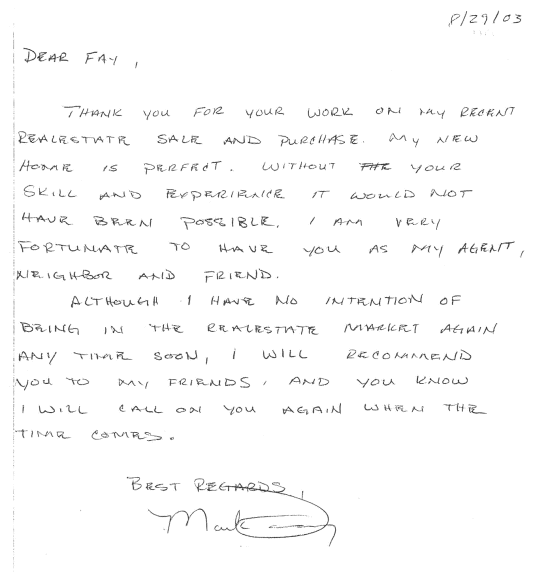 8/29/03
DEAR FAY,
THANK YOU FOR YOUR WORK ON MY RECENT
REALESTATE SALE AND PURCHASE. MY NEW
HOME IS PERFECT. WITHOUT THE YOUR
SKILL AND EXPERIENCE IT WOULD NOT
HAVE BEEN POSSIBLE. I AM VERY
FORTUNATE TO HAVE YOU AS MY AGENT,
NEIGHBOR AND FRIEND.
ALTHOUGH I HAVE NO INTENTION OF
BEING IN THE REALESTATE MARKET AGAIN
ANY TIME SOON, I WILL RECOMMEND
YOU TO MY FRIENDS, AND YOU KNOW
I WILL CALL ON YOU AGAIN WHEN THE
TIME COMES.
BEST REGARDS,
Mark